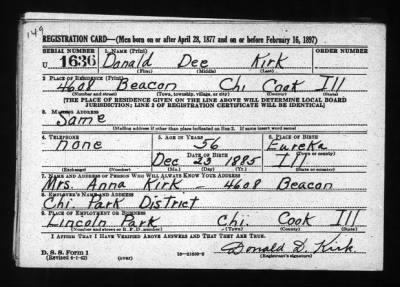 149
REGISTRATION CARD—(Men born on or after April 28, 1877 and on or before February 16, 1897)
SERIAL NUMBER 1. NAME (Print) ORDER NUMBER
U 1636 Donald Dee Kirk
(First) (Middle) (Last)
2. PLACE OF RESIDENCE (Print)
4608 Beacon Chi Cook Ill
(Number and street) (Town, township, village, or city) (County) (State)
[THE PLACE OF RESIDENCE GIVEN ON THE LINE ABOVE WILL DETERMINE LOCAL BOARD
JURISDICTION; LINE 2 OF REGISTRATION CERTIFICATE WILL BE IDENTICAL]
3. MAILING ADDRESS
Same
[Mailing address if other than place indicated on line 2. If same insert word same]
4. TELEPHONE 5. AGE IN YEARS 6. PLACE OF BIRTH
none 56 Eureka
DATE OF BIRTH (Town or county)
Dec 23 1885 Ill
(Exchange) (Number) (Mo.) (Day) (Yr.) (State or country)
7. NAME AND ADDRESS OF PERSON WHO WILL ALWAYS KNOW YOUR ADDRESS
Mrs. Anna Kirk - 4608 Beacon
8. EMPLOYER'S NAME AND ADDRESS
Chi. Park District
9. PLACE OF EMPLOYMENT OR BUSINESS
Lincoln Park Chi. Cook Ill
(Number and street or R. F. D. number) (Town) (County) (State)
I AFFIRM THAT I HAVE VERIFIED ABOVE ANSWERS AND THAT THEY ARE TRUE.
Donald D. Kirk
D. S. S. Form 1
(Revised 4-1-42) (over) (Registrant's signature)